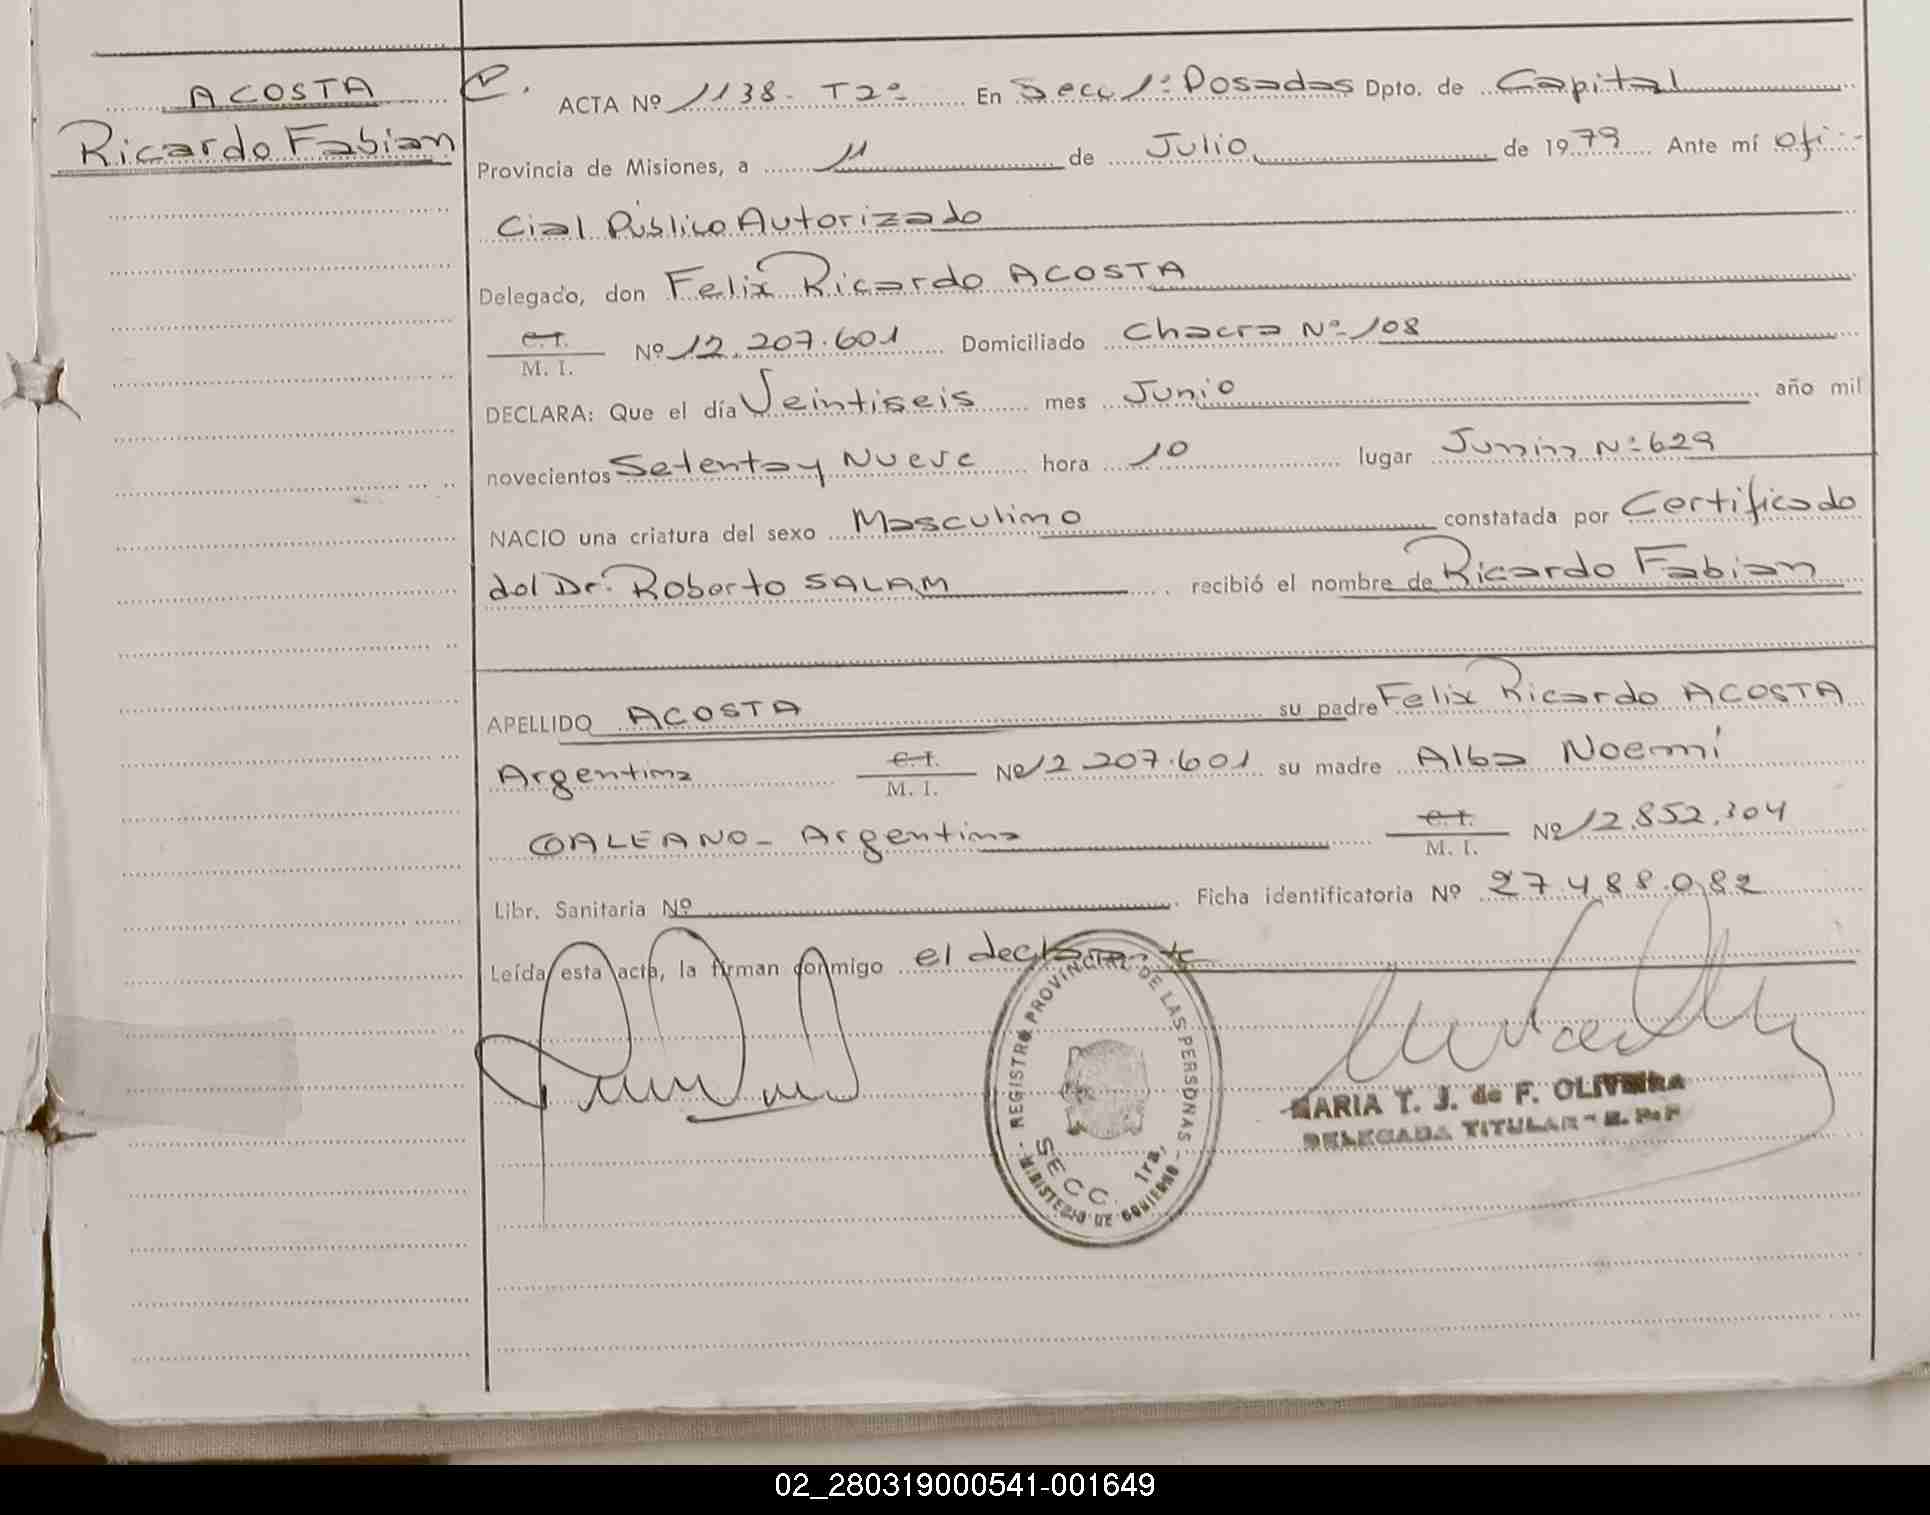 ACOSTA
Ricardo Fabian
ACTA Nº 1138 - T2º En Secc 1ª Posadas Dpto. de Capital
Provincia de Misiones, a 11 de Julio de 1979 Ante mí ofi-
cial Público Autorizado
Delegado, don Felix Ricardo ACOSTA
C.I.
M. I. Nº 12.207.601 Domiciliado Chacra Nº 108
DECLARA: Que el día Veintiseis mes Junio año mil
novecientos Setenta y Nueve hora 10 lugar Junin Nº 629
NACIO una criatura del sexo Masculino constatada por Certificado
del Dr. Roberto SALAM recibió el nombre de Ricardo Fabian
APELLIDO ACOSTA su padre Felix Ricardo ACOSTA
Argentina C.I.
M. I. Nº 12.207.601 su madre Alba Noemí
GALEANO - Argentina C.I.
M. I. Nº 12.852.304
Libr. Sanitaria Nº Ficha identificatoria Nº 27.488.082
Leída esta acta, la firman conmigo el declarante
REGISTRO PROVINCIAL DE LAS PERSONAS
SECC. 1ra,
MINISTERIO DE GOBIERNO
MARIA T. J. de F. OLIVEIRA
DELEGADA TITULAR - R. P. P
02_280319000541-001649